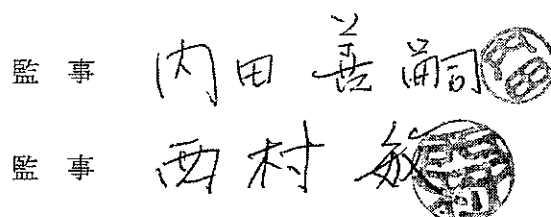 監事 内田善嗣
監事 西村敏